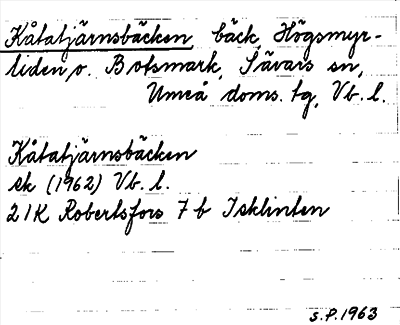 Kåtatjärnsbäcken, bäck, Högsmyr-
liden, o. Botsmark, Sävars sn,
Umeå doms. tg, Vb. l.
Kåtatjärnsbäcken
sk (1962) Vb. l.
21K Robertsfors 7b Isklinten
s.P.1963